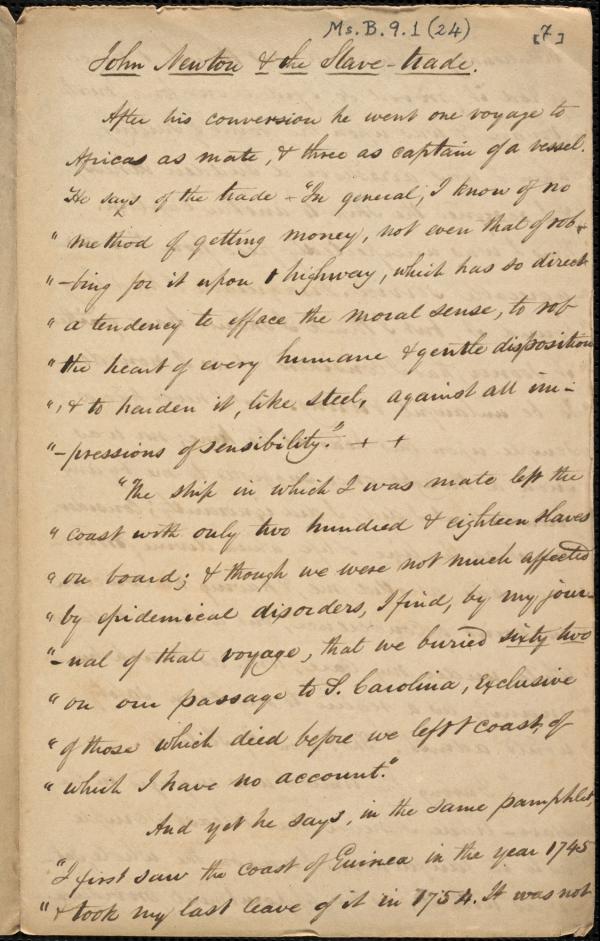 Ms. B. 9. 1 (24)
[7]
John Newton & the Slave-trade.
After his conversion he went one voyage to
Africa as mate, & three as captain of a vessel.
He says of the trade - "In general, I know of no
" method of getting money, not even that of rob-
"-bing for it upon highway, which has so direct
" a tendency to efface the moral sense, to rob
" the heart of every humane & gentle disposition
" , & to harden it, like steel, against all im-
"-pressions of sensibility." + +
"The ship in which I was mate left the
" coast with only two hundred & eighteen slaves
" on board; & though we were not much affected
" by epidemical disorders, I find, by my jour-
"-nal of that voyage, that we buried sixty two
" on our passage to S. Carolina, exclusive
" of those which died before we left coast, of
" which I have no account."
And yet he says, in the same pamphlet,
"I first saw the coast of Guinea in the year 1745
" & took my last leave of it in 1754. It was not